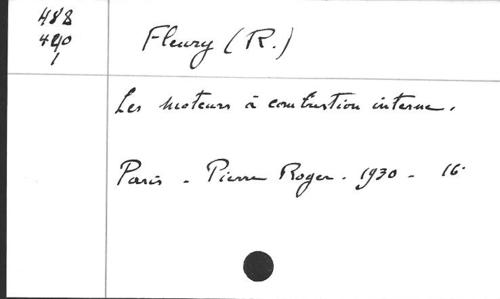 488
490
1
Fleury (R.)
Les moteurs à combustion interne.
Paris - Pierre Roger - 1930 - 16°